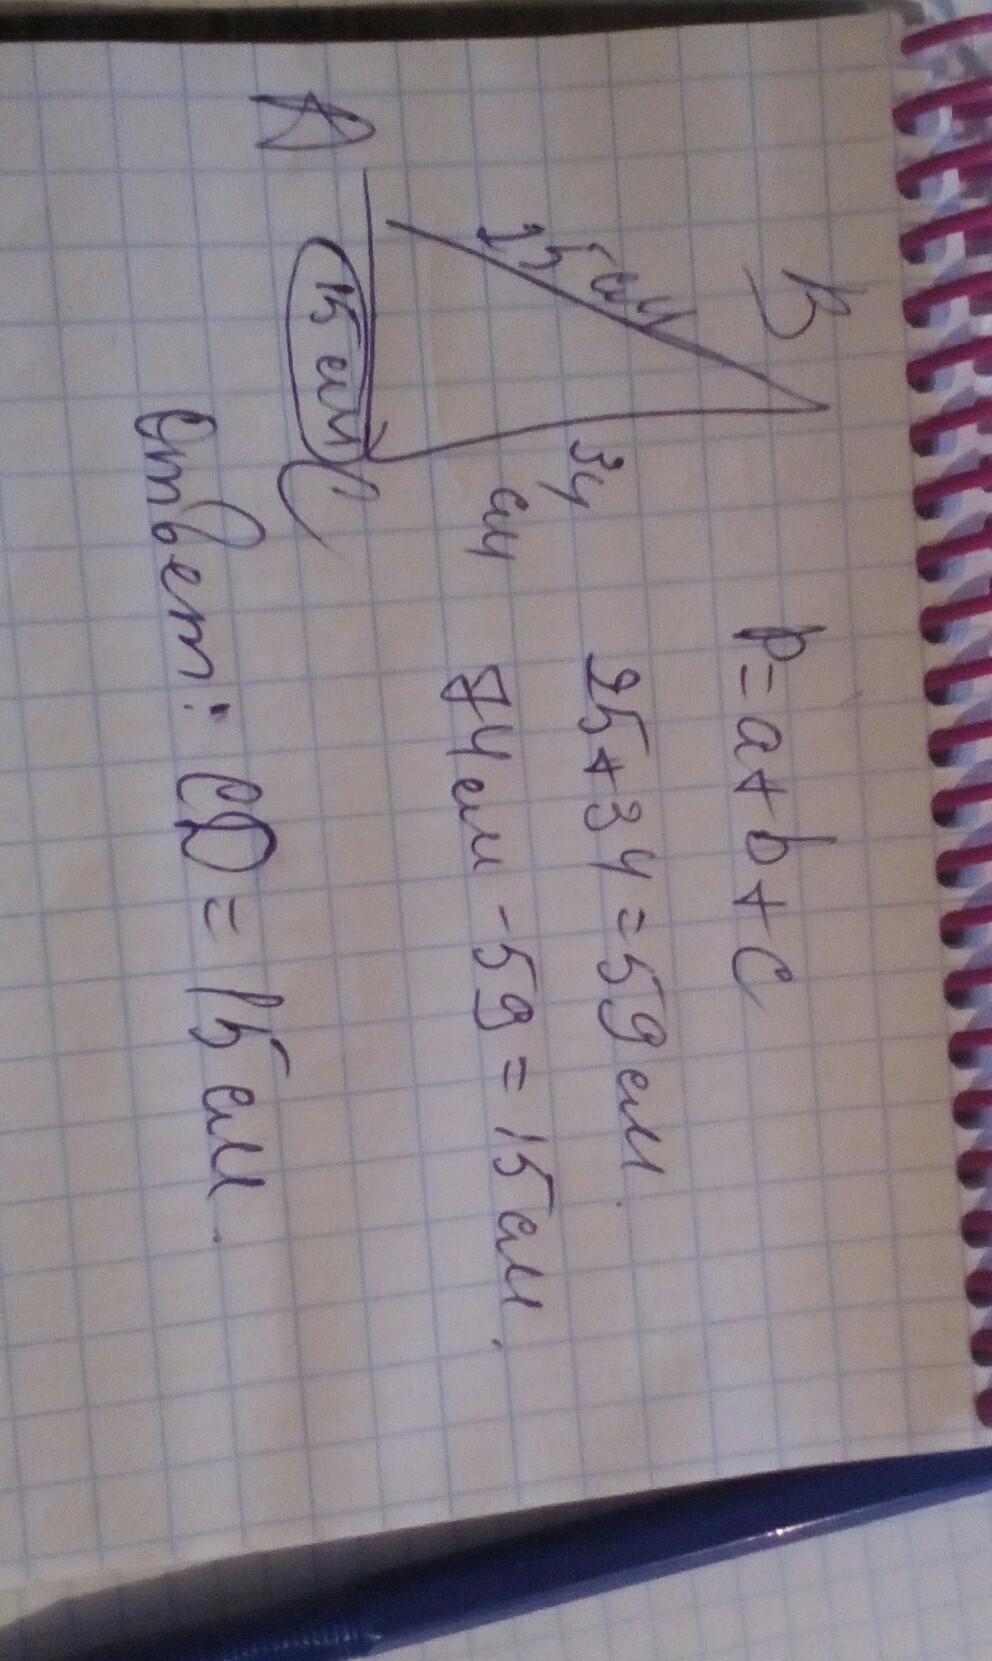 B
25 см
34
см
A
15 см
C
p = a + b + c
25 + 34 = 59 см.
74 см - 59 = 15 см.
Ответ: = 15 см.